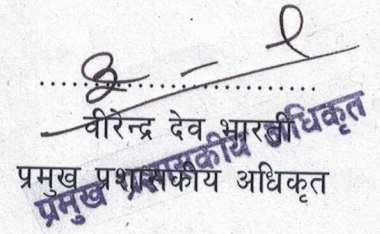 वीरेन्द्र देव भारती
प्रमुख प्रशासकीय अधिकृत
प्रमुख प्रशासकीय अधिकृत